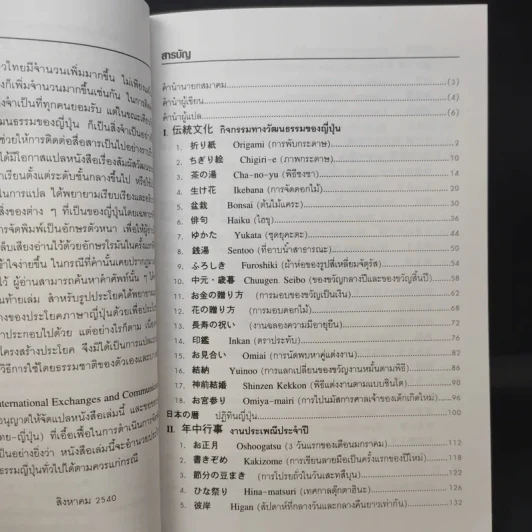 วไทยมีจำนวนเพิ่มมากขึ้น ไม่เพียง
งก็เพิ่มจำนวนมากขึ้นเช่นกัน
งจำเป็นที่ทุกคนยอมรับ
นธรรมของญี่ปุ่น ก็เป็นสิ่งจำเป็น
ช่วยให้การติดต่อสื่อสาร
ได้มีโอกาสแปลหนังสือเรื่อง
นในการแปล ได้พยายามเรียบเรียง
สิ่งของต่าง ๆ ที่เป็นของญี่ปุ่น
การจัดพิมพ์เป็นอักษรตัวหนา เพื่อให้ผู้
อ่านไว้ด้วยอักษรโรมัน
ข้าใจง่ายขึ้น ในกรณีที่คำนั้นเคย
ไว้ ผู้อ่านสามารถค้นหาคำศัพท์
นท้ายเล่ม สำหรับรูปประโยค
างของประโยคภาษาญี่ปุ่นด้วย
าประกอบไปด้วย แต่อย่างไรก็ตาม
โครงสร้างประโยค จึงมิได้เป็นการ
วิธีการใช้โดยธรรมชาติของตัวเอง
nternational Exchanges and Communic
อนุญาตให้จัดแปลหนังสือเล่มนี้
ทย-ญี่ปุ่น) ที่เอื้อเพื่อในการดำเนิน
ป็นอย่างยิ่งว่า หนังสือเล่มนี้จะ
ธรรมญี่ปุ่นทั่วไปได้ตามควรแก่กรณี
สิงหาคม 2540
สารบัญ
คำนำนายกสมาคม (3)
คำนำผู้เขียน (4)
คำนำผู้แปล (6)
I. 伝統文化 กิจกรรมทางวัฒนธรรมของญี่ปุ่น
1. 折り紙 Origami (การพับกระดาษ) 2
2. ちぎり絵 Chigiri-e (ภาพกระดาษ) 10
3. 茶の湯 Cha-no-yu (พิธีชงชา) 14
4. 生け花 Ikebana (การจัดดอกไม้) 20
5. 盆栽 Bonsai (ต้นไม้แคระ) 26
6. 俳句 Haiku (ไฮขุ) 30
7. ゆかた Yukata (ชุดยุคะตะ) 34
8. 銭湯 Sentoo (ที่อาบน้ำสาธารณะ) 38
9. ふろしき Furoshiki (ผ้าห่อของรูปสี่เหลี่ยมจัตุรัส) 46
10. 中元・歳暮 Chuugen, Seibo (ของขวัญกลางปีและของขวัญสิ้นปี) 58
11. お金の贈り方 (การมอบของขวัญเป็นเงิน) 62
12. 花の贈り方 (การมอบดอกไม้) 68
13. 長寿の祝い (งานฉลองความมีอายุยืน) 72
14. 印鑑 Inkan (ตราประทับ) 76
15. お見合い Omiai (การนัดพบหาคู่แต่งงาน) 82
16. 結納 Yuinoo (การแลกเปลี่ยนของขวัญงานหมั้นตามพิธี) 88
17. 神前結婚 Shinzen Kekkon (พิธีแต่งงานตามแบบชินโต) 90
18. お宮参り Omiya-mairi (การไปนมัสการศาลเจ้าของเด็กเกิดใหม่) 94
日本の暦 ปฏิทินญี่ปุ่น 100
II. 年中行事 งานประเพณีประจำปี
1. お正月 Oshoogatsu (3 วันแรกของเดือนมกราคม) 112
2. 書きぞめ Kakizome (การเขียนลายมือเป็นครั้งแรกของปีใหม่) 118
3. 節分の豆まき (การโปรยถั่วในวันเสะทสึบุน) 122
4. ひな祭り Hina-matsuri (เทศกาลตุ๊กตาฮินะ) 126
5. 彼岸 Higan (สัปดาห์ที่กลางวันและกลางคืนยาวเท่ากัน) 132